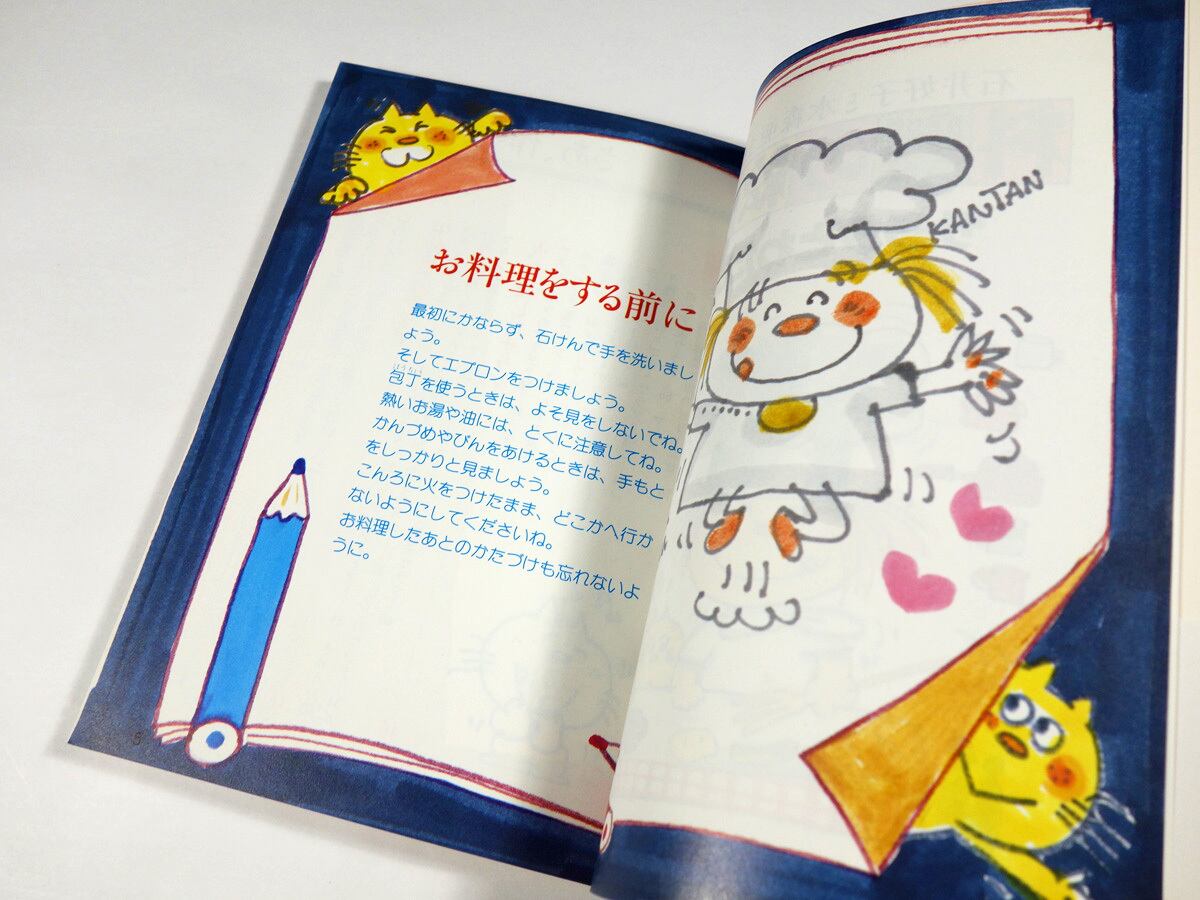 お料理をする前に
最初にかならず、石けんで手を洗いまし
ょう。
そしてエプロンをつけましょう。
包丁を使うときは、よそ見をしないでね。
熱いお湯や油には、とくに注意してね。
かんづめやびんをあけるときは、手もと
をしっかりと見ましょう。
こんろに火をつけたまま、どこかへ行か
ないようにしてくださいね。
お料理したあとのかたづけも忘れないよ
うに。
KANTAN